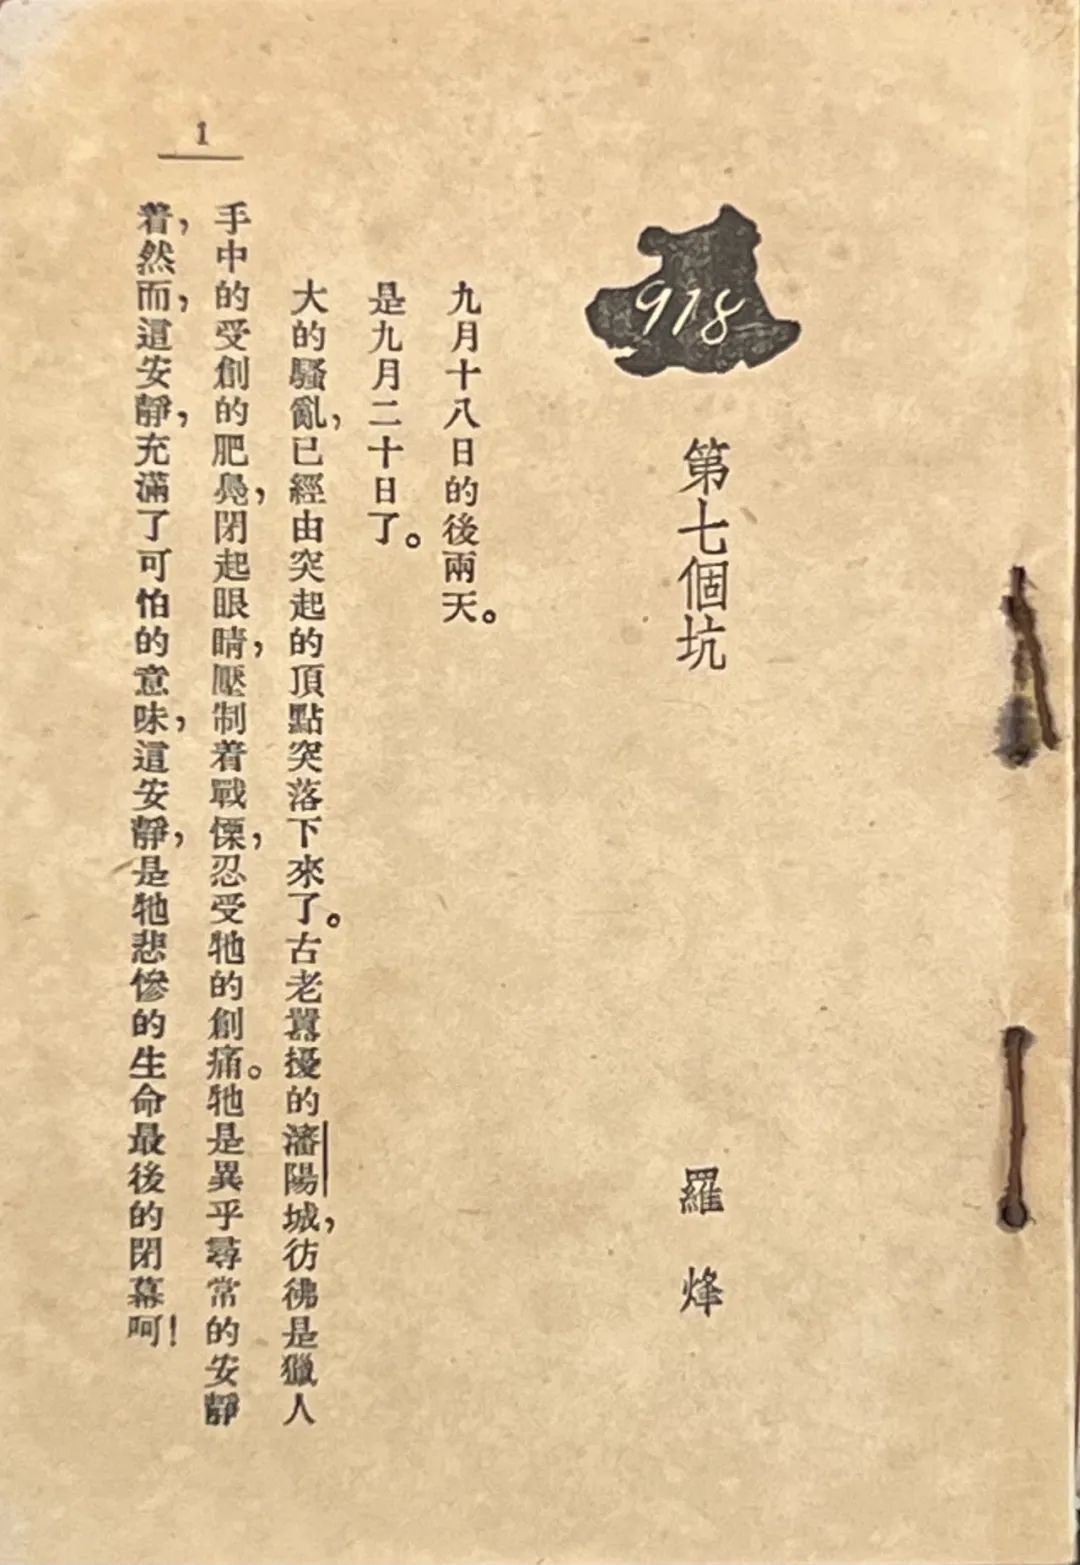 918
第七個坑
羅烽
九月十八日的後兩天。
是九月二十日了。
大的騷亂，已經由突起的頂點突落下來了。古老囂擾的瀋陽城，彷彿是獵人
手中的受創的肥鳧，閉起眼睛，壓制着戰慄，忍受牠的創痛。牠是異乎尋常的安靜
着，然而，這安靜，充滿了可怕的意味，這安靜，是牠悲慘的生命最後的閉幕呵！
1